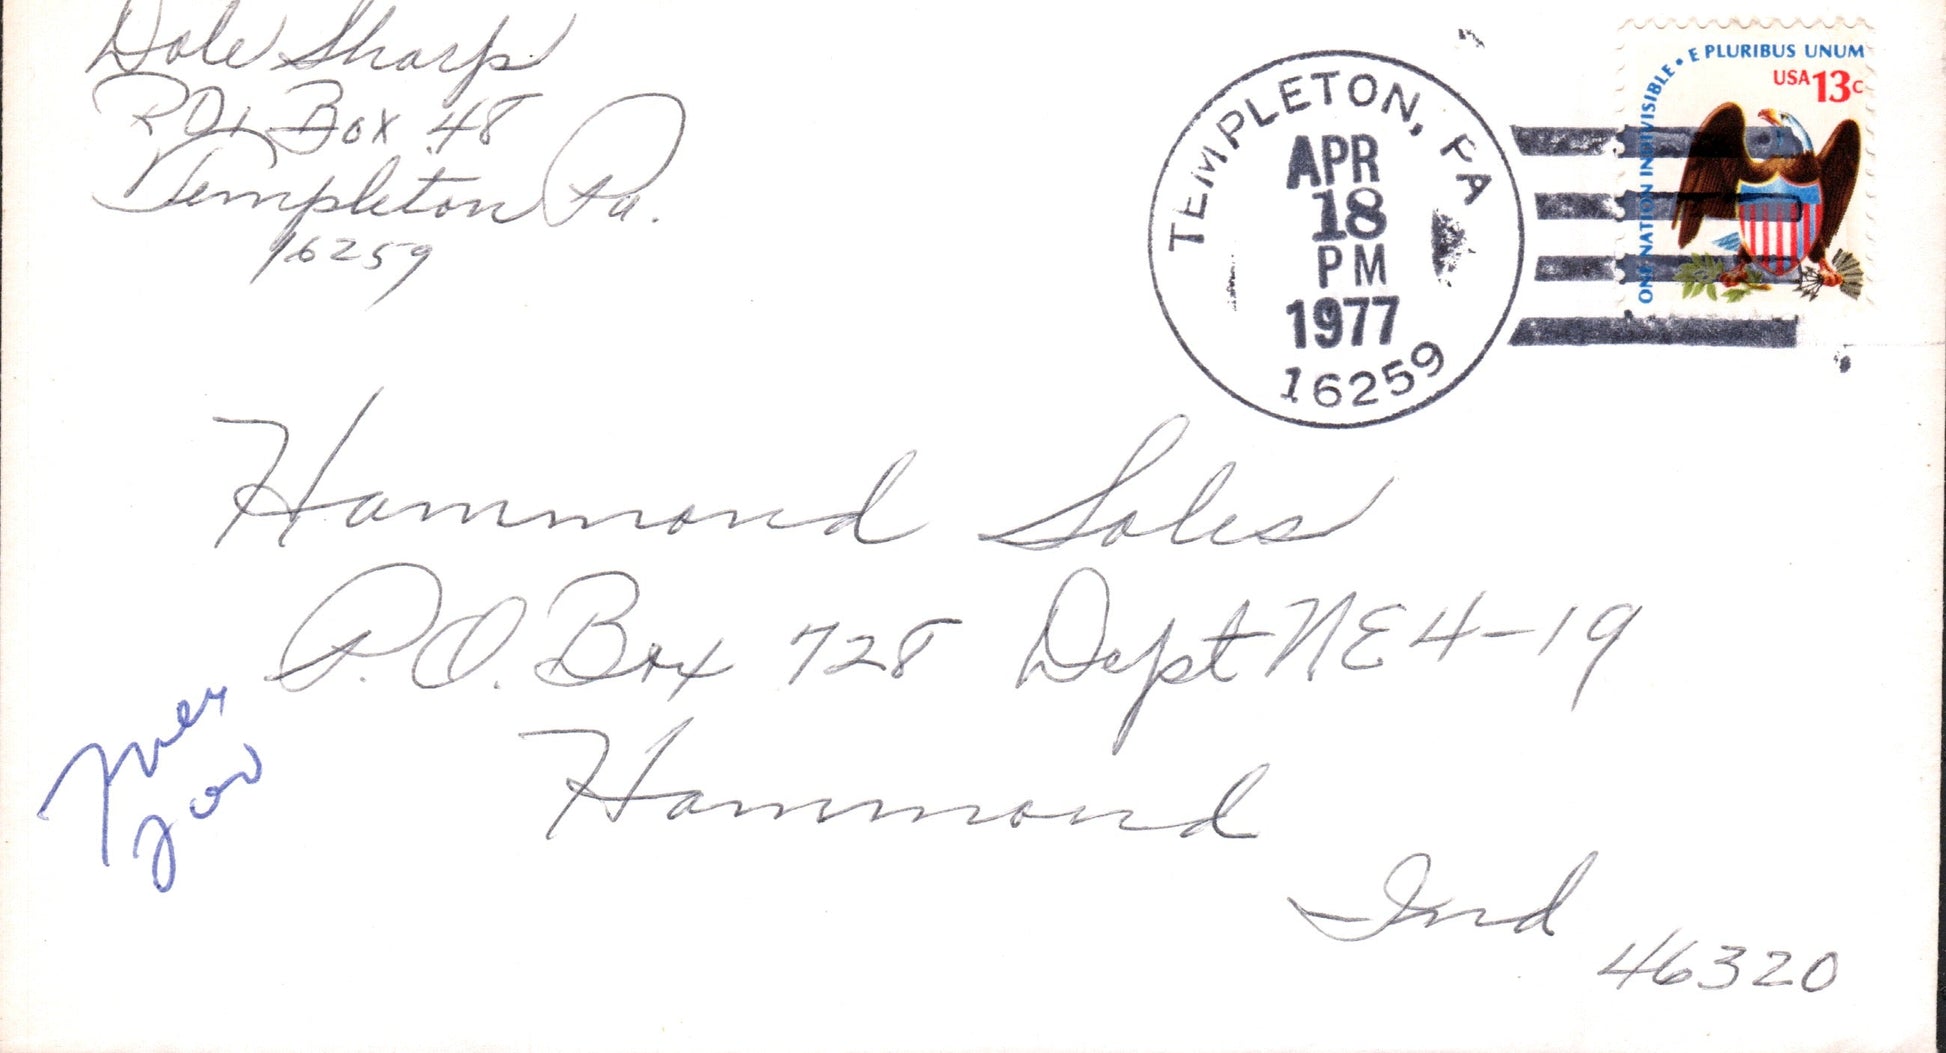 Dale Sharp
P.O. Box 48
Templeton Pa.
16259
TEMPLETON, PA
APR
18
PM
1977
16259
ONE NATION INDIVISIBLE • E PLURIBUS UNUM
USA 13c
Hammond Sales
P.O. Box 728 Dept NE4-19
Hammond
Ind
46320